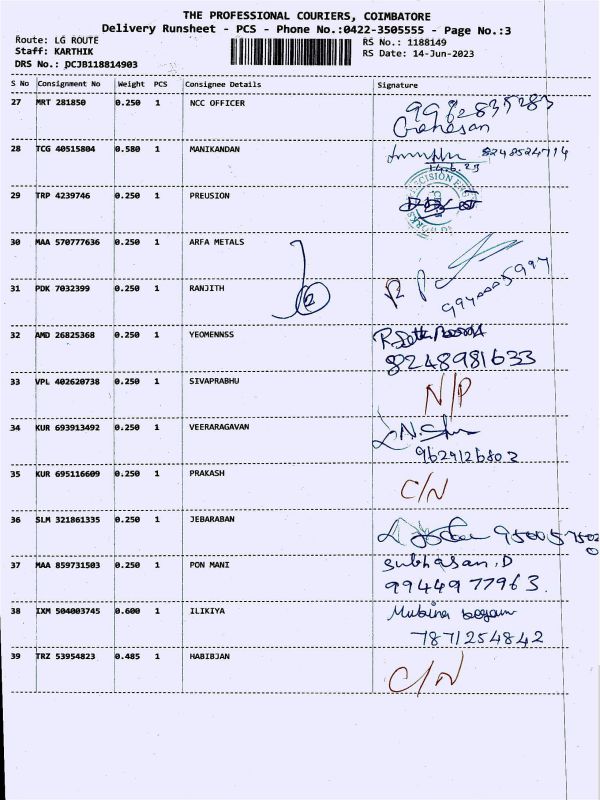 THE PROFESSIONAL COURIERS, COIMBATORE
Delivery Runsheet - PCS - Phone No.:0422-3505555 - Page No.:3
Route: LG ROUTE
RS No.: 1188149
Staff: KARTHIK
RS Date: 14-Jun-2023
DRS No.: DCJB118814903
S No Consignment No Weight PCS Consignee Details Signature
27 MRT 281850 0.250 1 NCC OFFICER
28 TCG 40515804 0.580 1 MANIKANDAN 8248524714
14.6.23
29 TRP 4239746 0.250 1 PREUSION
30 MAA 570777636 0.250 1 ARFA METALS
31 PDK 7032399 0.250 1 RANJITH 2 9940005994
32 AMD 26825368 0.250 1 YEOMENNSS
8248981633
33 VPL 402620738 0.250 1 SIVAPRABHU N/P
34 KUR 693913492 0.250 1 VEERARAGAVAN
9629126803
35 KUR 695116609 0.250 1 PRAKASH C/N
36 SLM 321861335 0.250 1 JEBARABAN
37 MAA 859731503 0.250 1 PON MANI Subhasan.D
9944977963.
38 IXM 504003745 0.600 1 ILIKIYA Mubina begam
7871254842
39 TRZ 53954823 0.485 1 HABIBJAN C/N